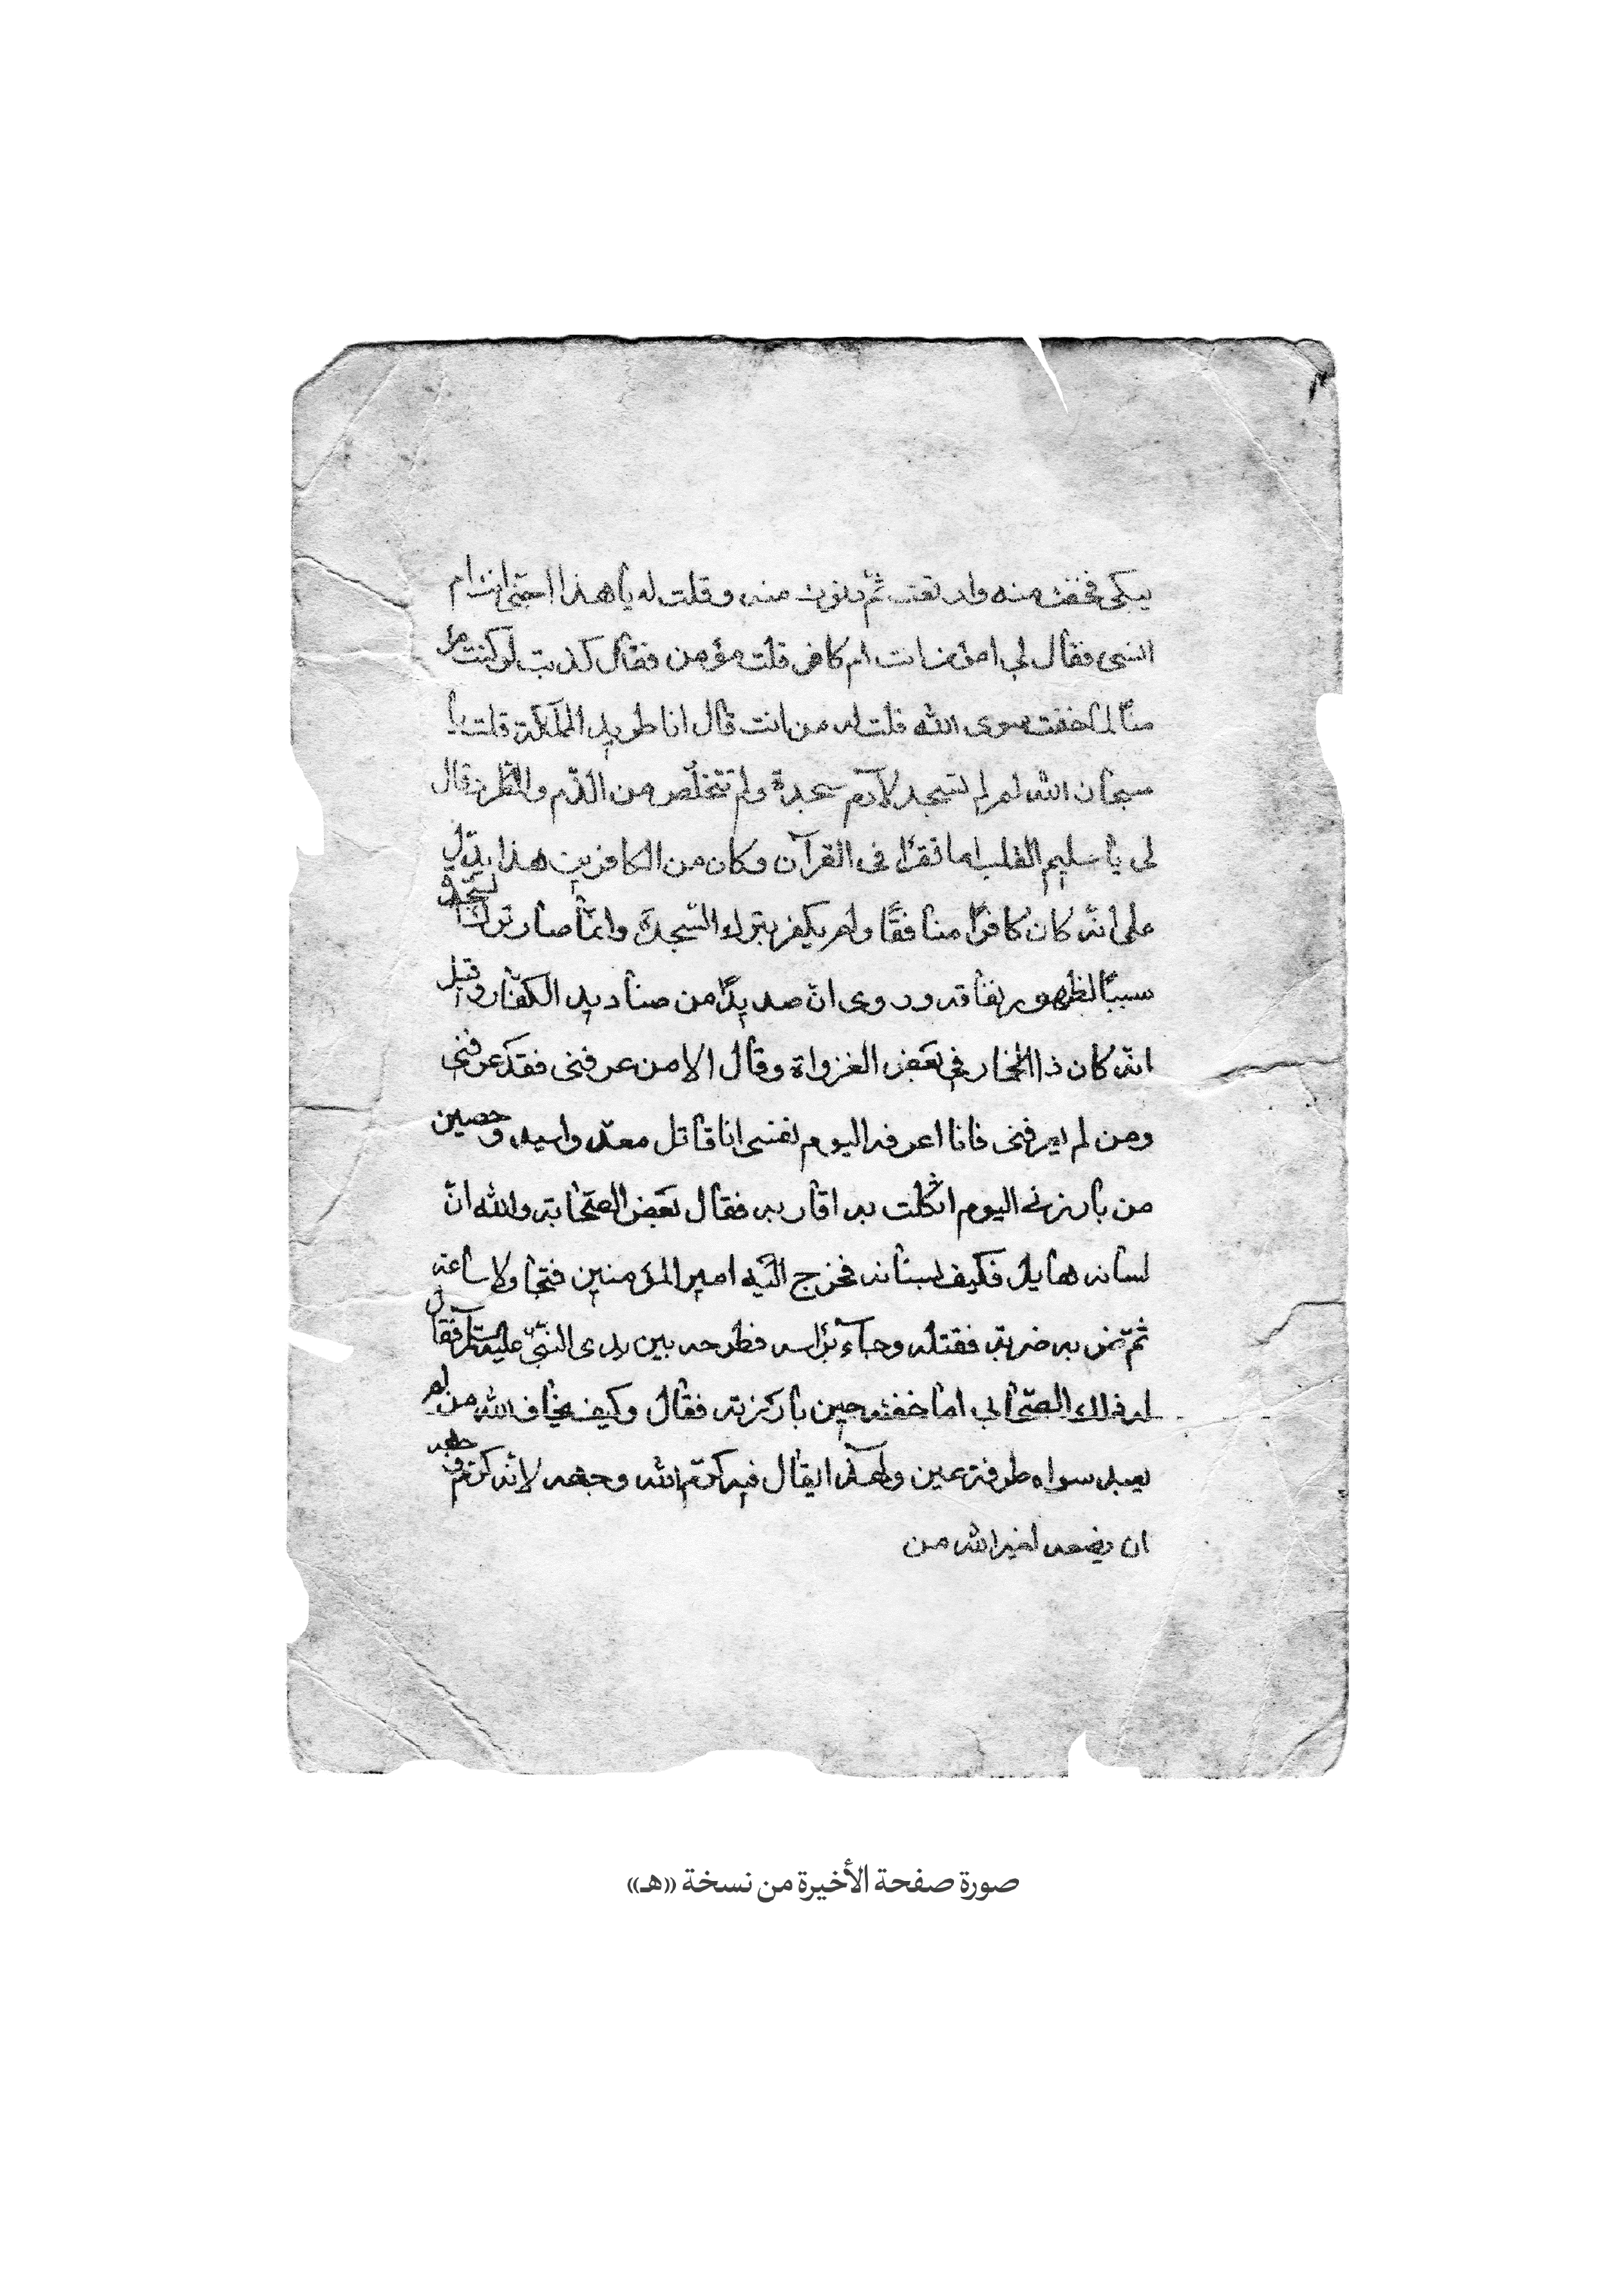 يبكى فخفت منه وارتعت ثم دنوت منه وقلت له يا هذا اجنى انت ام
انسى فقال لى امؤمن انت ام كافر قلت مؤمن فقال كذبت لو كنت
منّا لما خفت سوى الله قلت له من انت قال انا طريد المملكة قلت يا
سبحان الله لم لم تسجد لآدم سجدة ولم تتخلّص من الذّم والطّرد قال
لى يا سليم القلب اما تقرأ فى القرآن وكان من الكافرين هذا يدّل
على انّه كان كافرًا منافقًا ولم يكفر بترك السّجدة وانّما صار ترك السّجدة
سببًا لظهور نفاقه وروى انّ صديدًا من صناديد الكفّار وقيل
انّه كان ذا الخمار فى بعض الغزواة وقال الا من عرفنى فقد عرفنى
ومن لم يعرفنى فانا اعرفه اليوم نفسى انا قاتل معد واسيد وحصين
من بارزنى اليوم اثكلت به اقاربه فقال بعض الصّحابة والله انّ
لسانه هايل فكيف بسنانه فخرج اليه امير المؤمنين فتحاولا ساعة
ثمّ ضربه ضربة فقتله وجآء برأسه فطرحه بين يدى النّبىّ عليه السّلام فقال
له ذلك الصّحابى اما خفته حين بارزته فقال وكيف يخاف الله من لم
يعبد سواه طرفة عين ولهذا يقال فيه كرّم الله وجهه لانّه كرّم وجهه
ان يضعه لغير الله من
صورة صفحة الأخيرة من نسخة «هـ»